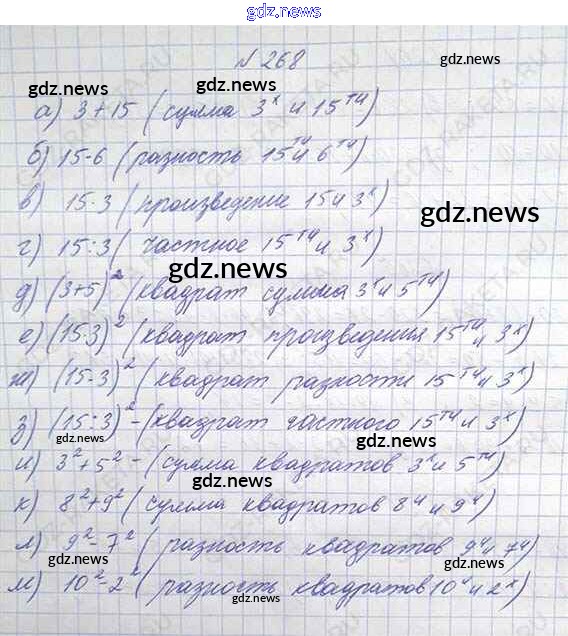 gdz.news
№ 268
gdz.news
gdz.news gdz.news
а) 3+15 (сумма 3ˣ и 15ᵀᴴ)
б) 15-6 (разность 15ᵀᴴ и 6ᵀᴴ)
в) 15·3 (произведение 15 и 3ˣ)
gdz.news
г) 15:3 (частное 15ᵀᴴ и 3ˣ)
gdz.news
д) (3+5)² (квадрат сумма 3ˣ и 5ᵀᴴ)
е) (15·3)² (квадрат произведения 15ᵀᴴ и 3ˣ)
ж) (15-3)² (квадрат разности 15ᵀᴴ и 3ˣ)
з) (15:3)² - (квадрат частного 15ᵀᴴ и 3ˣ)
gdz.news gdz.news
и) 3²+5² - (сумма квадратов 3ˣ и 5ᵀᴴ)
gdz.news
к) 8²+9² (сумма квадратов 8ᴴ и 9ᴴ)
л) 9²-7² (разность квадратов 9ᴴ и 7ᴴ)
gdz.news
м) 10²-2² (разность квадратов 10ᴴ и 2ˣ)
gdz.news
gdz.news